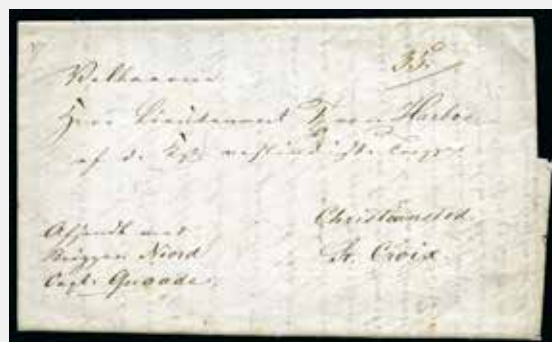 Velbaarne
Herr Lieutenant F. von Harboe
af de Kgl. vestindiske Corps
Christiansted
St. Croix
Afsendt med
Briggen Niord
Capt: Quaade